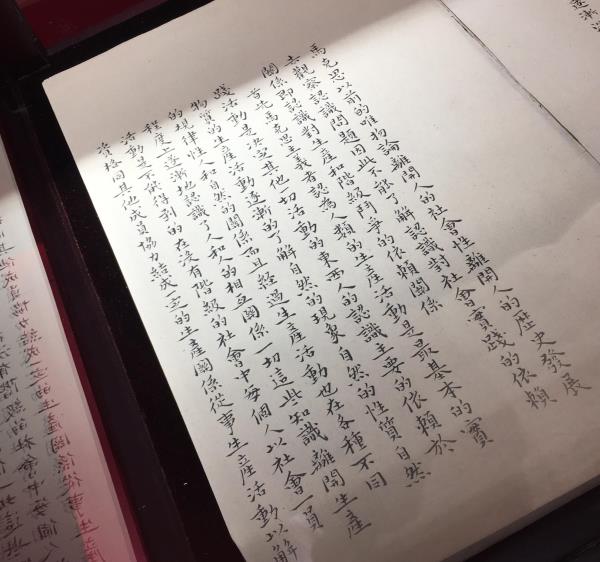 逐漸
馬克思以前的唯物論離開人的社會性離開人的歷史發展
去觀察認識問題因此不能了解認識對社會實踐的依賴
關係即認識對生產和階級鬥爭的依賴關係
首先馬克思主義者認為人類的生產活動是最基本的實
踐活動是決定其他一切活動的東西人的認識主要的依賴於
物質的生產活動逐漸的了解自然的現象自然的性質自然
的規律性人和自然的關係而且經過生產活動也在各種不同
程度上逐漸地認識了人和人的相互關係一切這些知識離開生產
活動是不能得到的在沒有階級的社會中每個人以社會一員
資格同其他成員協力結成一定的生產關係從事生產活動以解
其他成員協力結成一定的生產關係從事生產
有階級的社會中每個人